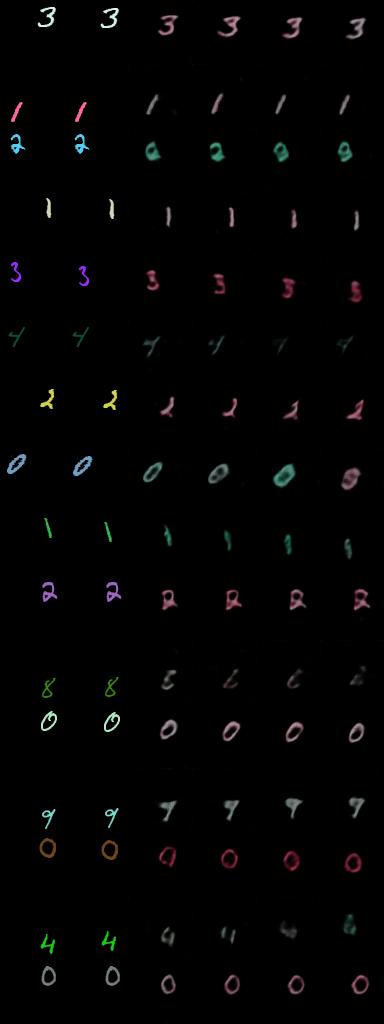 3 3 3 3 3 3
1 1 1 1 1 1
2 2 2
1 1 1 1 1 1
3 3 3 3 3 3
4 4 4 4 4 4
2 2 2 2 2 2
0 0 0 0 0 0
1 1 1 1 1 1
2 2 2 2 2 2
8 8
0 0 0 0 0 0
9 9 9 9 9 9
0 0 0 0 0 0
4 4 4 4
0 0 0 0 0 0